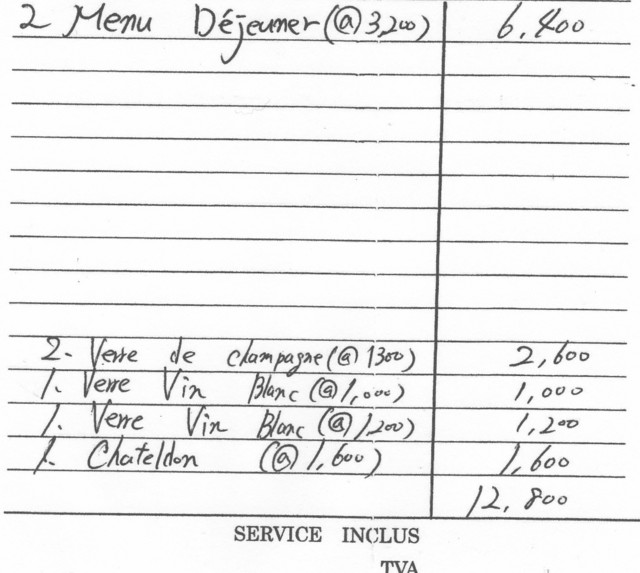 2 Menu Déjeuner (@ 3,200) 6,400
2. Verre de champagne (@ 1300) 2,600
1. Verre Vin Blanc (@ 1,000) 1,000
1. Verre Vin Blanc (@ 1,200) 1,200
1. Chateldon (@ 1,600) 1,600
12,800
SERVICE INCLUS
TVA